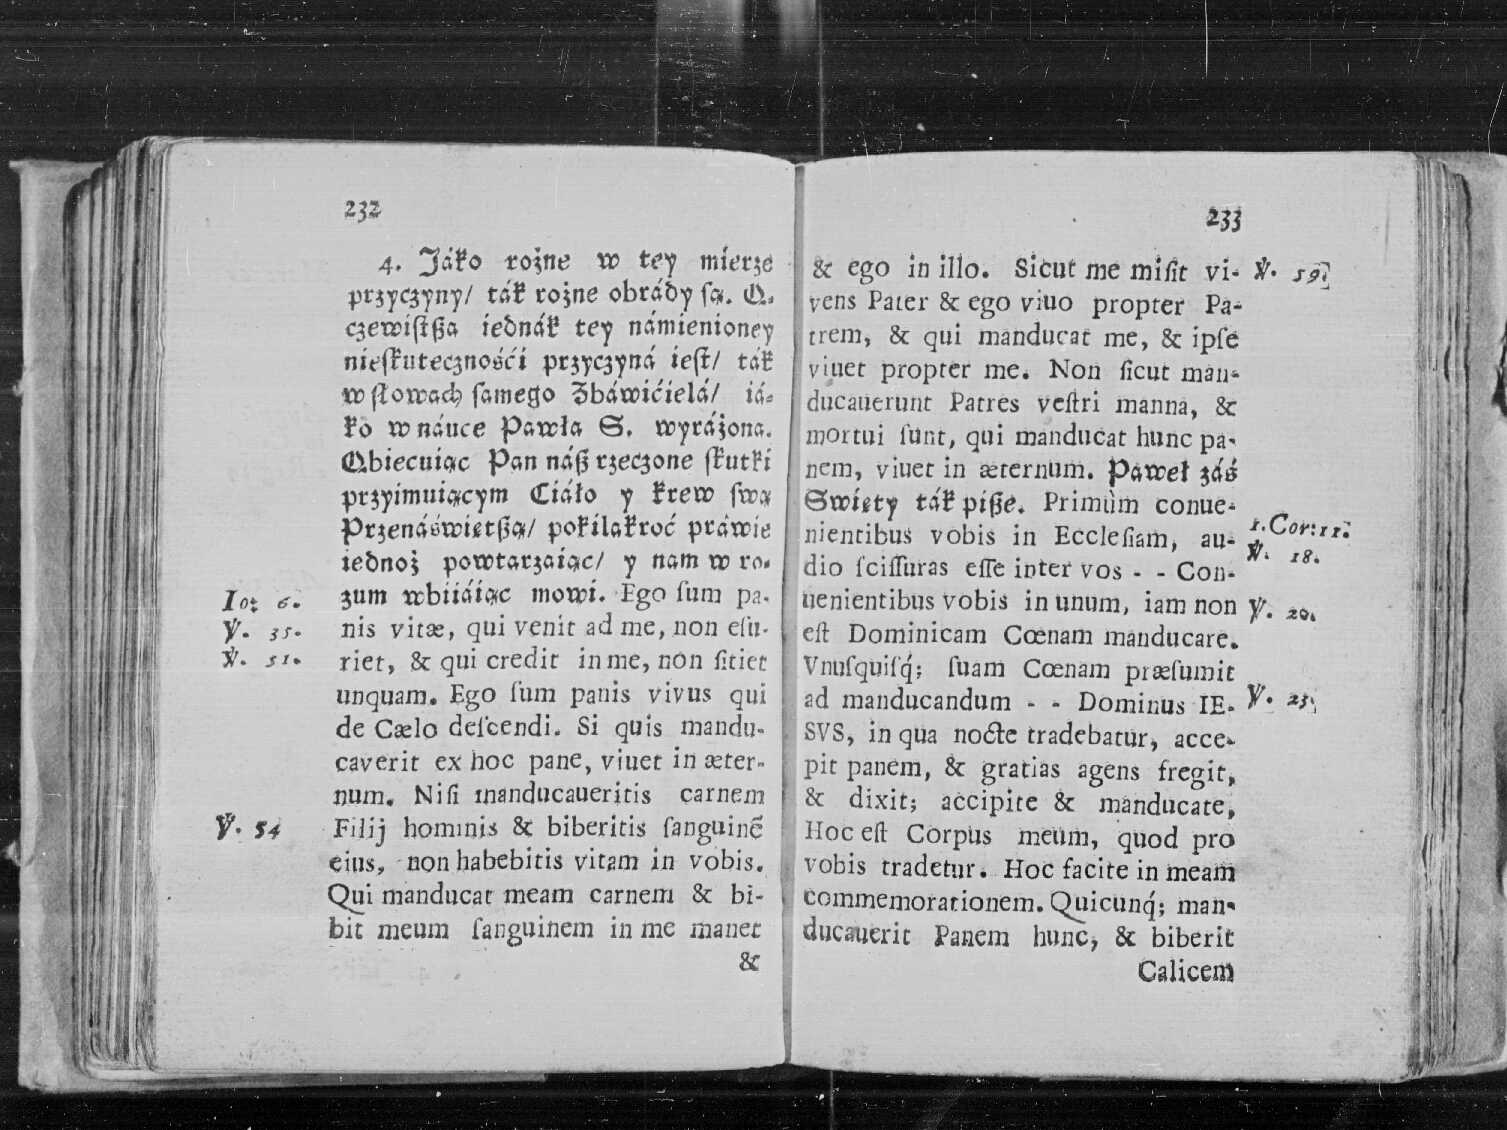 232
4. Jáko rożne w tey mierze
przyczyny/ ták rożne obrády ſą. O-
czewiſtßa iednák tey námienioney
nieſkutecznośći przyczyná ieſt/ ták
w ſłowach ſamego Zbáwićielá/ iá-
ko w náuce Pawła S. wyráżona.
Obiecuiąc Pan náß rzeczone ſkutki
przyimuiącym Ciáło y krew ſwą
Przenáświętßą/ pokilakroć práwie
iednoż powtarzáiąc/ y nam w ro-
zum wbiiáiąc mowi. Ego ſum pa-
nis vitæ, qui venit ad me, non eſu-
riet, & qui credit in me, non ſitiet
unquam. Ego ſum panis vivus qui
de Cælo deſcendi. Si quis mandu-
caverit ex hoc pane, viuet in æter-
num. Niſi manducaueritis carnem
Filij hominis & biberitis ſanguinē
eius, non habebitis vitam in vobis.
Qui manducat meam carnem & bi-
bit meum ſanguinem in me manet
&
Io: 6.
℣. 35.
℣. 51.
℣. 54
233
& ego in illo. Sicut me miſit vi-
vens Pater & ego viuo propter Pa-
trem, & qui manducat me, & ipſe
viuet propter me. Non ſicut man-
ducauerunt Patres veſtri manna, &
mortui ſunt, qui manducat hunc pa-
nem, viuet in æternum. Paweł záś
Swięty ták piße. Primùm conue-
nientibus vobis in Eccleſiam, au-
dio ſciſſuras eſſe inter vos - - Con-
uenientibus vobis in unum, iam non
eſt Dominicam Cœnam manducare.
Vnuſquiſq́; ſuam Cœnam præſumit
ad manducandum - - Dominus IE-
SVS, in qua nocte tradebatur, acce-
pit panem, & gratias agens fregit,
& dixit; accipite & manducate,
Hoc eſt Corpus meum, quod pro
vobis tradetur. Hoc facite in meam
commemorationem. Quicunq́; man-
ducauerit Panem hunc, & biberit
Calicem
℣. 59.
1. Cor: 11.
℣. 18.
℣. 20.
℣. 23.